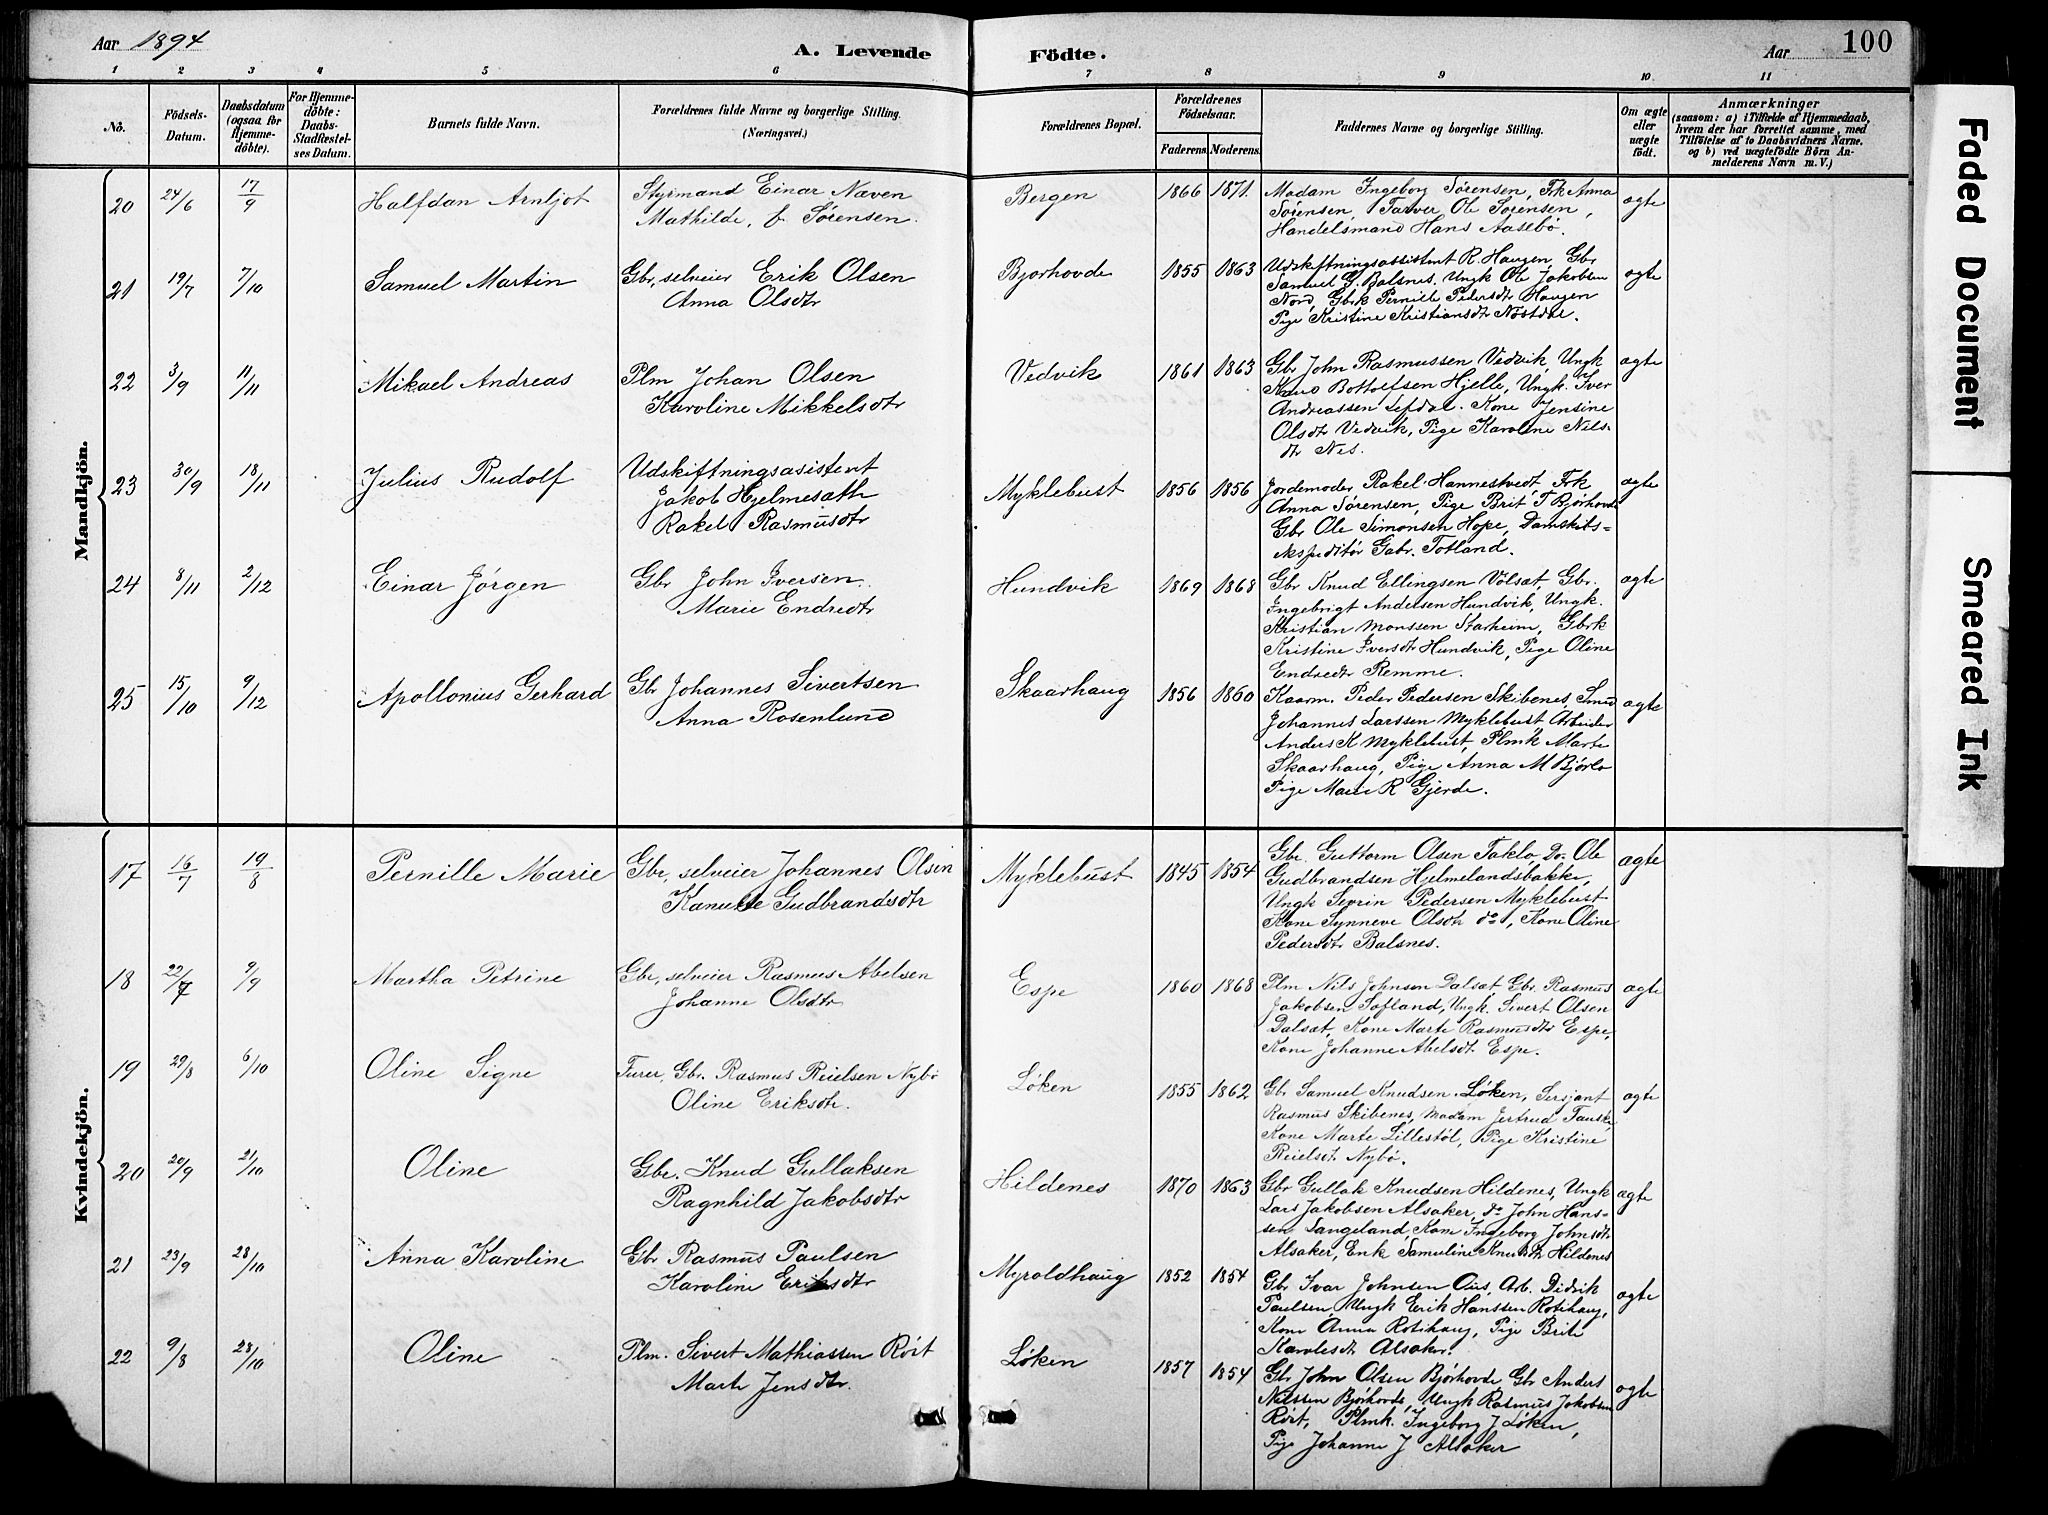 Aar 1894
A. Levende Födte.
Aar
100
1 2 3 4 5 6 7 8 9 10 11
No.
Födsels-Datum.
Daabsdatum (ogsaa for Hjemme-döbte).
For Hjemme-döbte: Daabs-Stadfæstel-ses Datum.
Barnets fulde Navn.
Forældrenes fulde Navne og borgerlige Stilling. (Næringsvei.)
Forældrenes Bopæl.
Forældrenes Födselsaar.
Faderens. Moderens.
Faddernes Navne og borgerlige Stilling.
Om ægte eller uægte födt.
Anmærkninger
(saasom: a) i Tilfælde af Hjemmedaab, hvem der har forrettet samme, med Tilföielse af to Daabsvidners Navne. og b) ved uægtefödte Börn An-melderens Navn m. V.)
Mandkjön.
20 24/6 17/9 Halfdan Arnljot
Styrmand Einar Næven
Mathilde, f. Sørensen.
Bergen 1866 1871.
Madam Ingeborg Sørensen, Frk Anna
Sørensen, Farver Ole Sørensen,
Handelsmand Hans Aasebø.
ægte
21 19/7 7/10 Samuel Martin
Gbr, selveier Erik Olsen
Anna Olsdtr
Bjørhovde 1855 1863
Udskiftningsassistent R Haugen, Gbr
Samuel G. Balsnes, Ungk Ole Jakobsen
Nord, Gbrk Pernille Pedersdtr Haugen
Pige Kristine Kristiansdtr Nøstdal.
ægte
22 3/9 11/11 Mikael Andreas
Plm Johan Olsen
Karoline Mikkelsdtr
Vedvik 1861 1863
Gbr John Rasmussen Vedvik, Ungk
Knud Bottolfsen Hjelle, Ungk. Iver
Andreassen Lefdal. Kone Jensine
Olsdtr Vedvik, Pige Karoline Nils-
dtr Nes.
ægte
23 30/9 18/11 Julius Rudolf
Udskiftningsasistent
Jakob Hjelmesæth
Rakel Rasmusdtr
Myklebust 1856 1856
Jordemoder Rakel Hannestvedt Frk
Anna Sørensen, Pige Brit T Bjørhovde
Gbr Ole Simonsen Hope, Damskibs-
ekspeditør Gabr. Totland.
ægte
24 8/11 2/12 Einar Jørgen
Gbr John Iversen.
Marie Endredtr
Hundvik 1869 1868
Gbr Knud Ellingsen Vølsæt, Gbr.
Ingebrigt Andersen Hundvik, Ungk.
Kristian Monssen Starheim, Gbrk
Kristine Iversdtr Hundvik, Pige Oline
Endredtr Remme.
ægte
25 15/10 9/12 Apollonius Gerhard
Gbr Johannes Sivertsen
Anna Rosenlund
Skaarhaug 1856 1860
Kaarm. Peder Pedersen Skibenes, Smed
Johannes Larssen Myklebust Arbeider
Anders K Myklebust, Plmk Marte
Skaarhaug, Pige Anna M Bjørlo
Pige Marie R Gjerde.
ægte
Kvindekjön.
17 16/7 19/8 Pernille Marie
Gbr, selveier Johannes Olsen
Kanutte Gudbrandsdtr
Myklebust 1845 1854
Gbr. Guttorm Olsen Taklo, Do Ole
Gudbrandsen Hjelmelandsbakke,
Ungk Severin Pedersen Myklebust
Kone Synneve Olsdtr do, Kone Oline
Pedersdtr Balsnes.
ægte
18 22/7 9/9 Martha Petrine
Gbr, selveier Rasmus Abelsen
Johanne Olsdtr
Espe 1860 1868
Plm Nils Johnsen Dalsæt Gbr. Rasmus
Jakobsen Sofland, Ungk. Sivert Olsen
Dalsæt, Kone Marte Rasmusdtr Espe,
Kone Johanne Abelsdtr Espe.
ægte
19 29/8 6/10 Oline Signe
Furer, Gbr. Rasmus Reielsen Nybø
Oline Eriksdtr.
Løken 1855 1862
Gbr Samuel Knudsen Løken, Sersjant
Rasmus Skibenes, Madam Jertrud Tauske
Kone Marte Lillestøl, Pige Kristine
Reielsdt Nybø.
ægte
20 20/9 21/10 Oline
Gbr. Knud Gullaksen
Ragnhild Jakobsdtr
Hildenes 1870 1863
Gbr Gullak Knudsen Hildenes, Ungk
Lars Jakobsen Alsaker, do John Hans-
sen Langeland, Kone Ingeborg Johnsdtr
Alsaker, Enk Samuline Knudsdtr Hildenes
ægte
21 23/9 28/10 Anna Karoline
Gbr Rasmus Paulsen
Karoline Eriksdtr
Myroldhaug 1852 1854
Gbr Ivar Johnsen Øis, Arb. Didrik
Paulsen, Ungk Erik Hanssen Rotihaug,
Kone Anna Rotihaug, Pige Brite
Karolesdt Alsaker.
ægte
22 9/8 28/10 Oline
Plm. Sivert Mathiassen Røit
Marte Jensdtr.
Løken 1857 1854
Gbr John Olsen Bjørhovde Gbr Anders
Nilssen Bjørhovde, Ungk Rasmus Jakobsen
Røit, Plmk. Ingeborg J Løken,
Pige Johanne J Alsaker
ægte
Faded Document
Smeared Ink